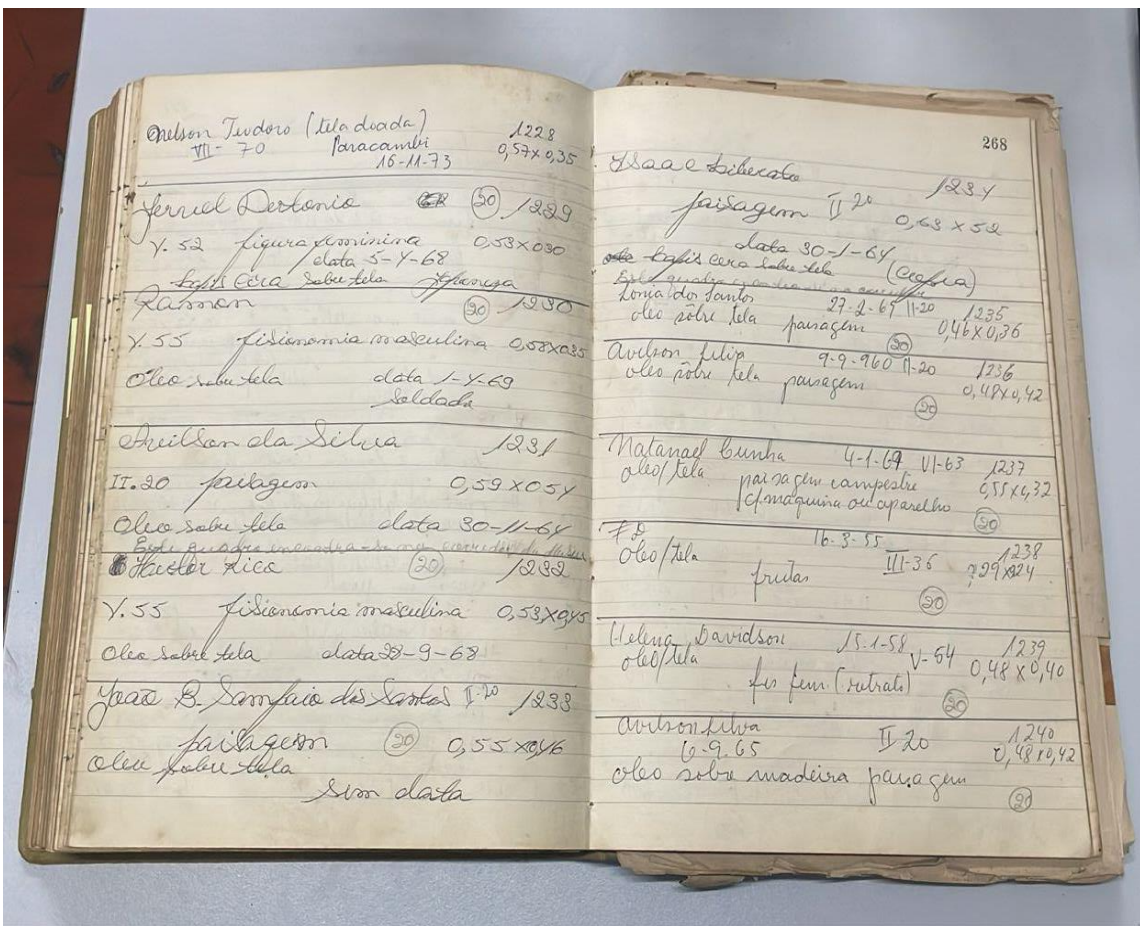 Onelson Teodoro (tela doada) 1228
VII - 70 Paracambi 0,57 x 0,35
16-11-73
(20) 1229
V. 52 figura feminina 0,53 x 030
data 5-4-68
lapis cera sobre tela
Ramon (20) 1230
V. 55 fisionomia masculina 0,58x035
Oleo sobre tela data 1-4-69
Soldado
da Silva 1231
II. 20 paisagem 0,59 x 054
Oleo sobre tela data 30-11-64
Este quadro encontra-se no corredor do
Rico (20) 1232
V. 55 fisionomia masculina 0,53x0,45
Oleo sobre tela data 28-9-68
João B. Sampaio dos Santos II-20 1233
paisagem (20) 0,55 x 0,46
oleo sobre tela
Sem data
268
Isaac Liberato 1234
paisagem II 20 0,63 x 52
data 30-1-64
lapis cera sobre tela
Este quadro
Sonia dos Santos 27-2-67 II-20 1235
oleo sôbre tela paisagem 0,46x0,36
(20)
9-9-960 II-20 1236
oleo sôbre tela paisagem 0,48x0,42
(20)
Natanael Cunha 4-1-69 VI-63 1237
oleo/tela paisagem campestre
c/maquina ou aparelho
(20)
16-3-55 1238
oleo/tela III-36
frutas
(20)
Helena Davidson 15-1-58 V-54 1239
oleo/tela 0,48 x 0,40
fis fem (retrato)
(20)
Avilson Silva II 20 1240
6-9-65 0,48x0,42
oleo sobre madeira paisagem
(20)